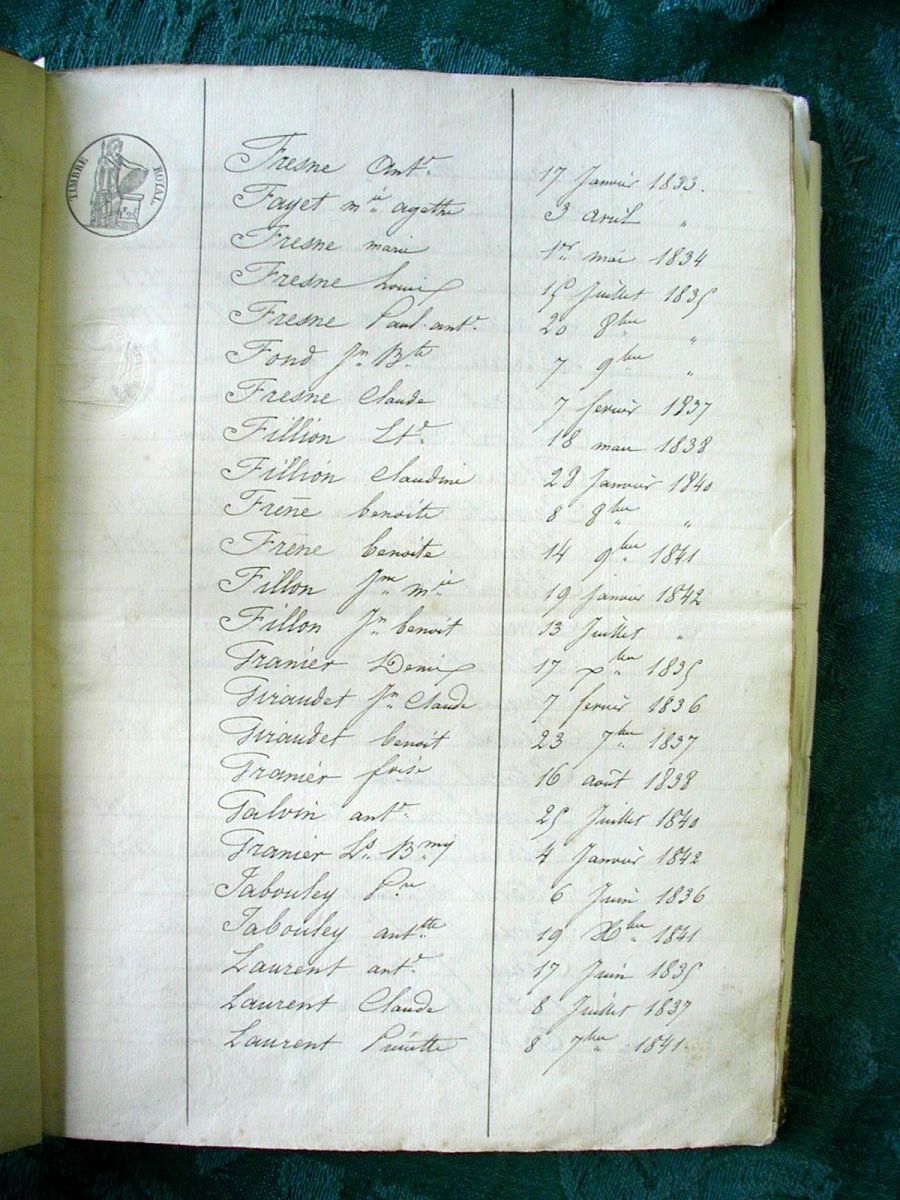 TIMBRE ROYAL
Fresne antne 17 Janvier 1833.
Fayet mie agathe 3 avril "
Fresne marie 1er mai 1834
Fresne Louis 15 Juillet 1835
Fresne Paul-antne 20 8bre "
Fond Jn Bte 7 9bre "
Fresne Claude 7 fevrier 1837
Fillion 18 mars 1838
Fillion Claudine 28 Janvier 1840
Frêne benoite 8 8bre "
Frêne benoite 14 9bre 1841
Fillon Jne mie 19 janvier 1842
Fillon Jn benoit 13 Juillet "
Granier Denis 17 1835
Giraudet Jn Claude 7 fevrier 1836
Giraudet benoit 23 7bre 1837
Granier 16 août 1838
Galvin antne 25 Juillet 1840
Granier Ls Bmy 4 Janvier 1842
Jabouley Pre 6 Juin 1836
Jabouley anttte 19 Xbre 1841
Laurent antne 17 Juin 1835
Laurent Claude 8 Juillet 1837
Laurent Pierrette 8 7bre 1841